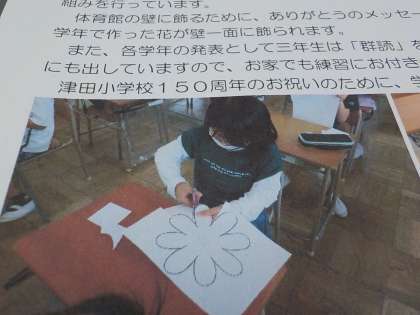 組みを行っています。
体育館の壁に飾るために、ありがとうのメッセー
学年で作った花が壁一面に飾られます。
また、各学年の発表として三年生は「群読」を
にも出していますので、お家でも練習にお付き
津田小学校１５０周年のお祝いのために、